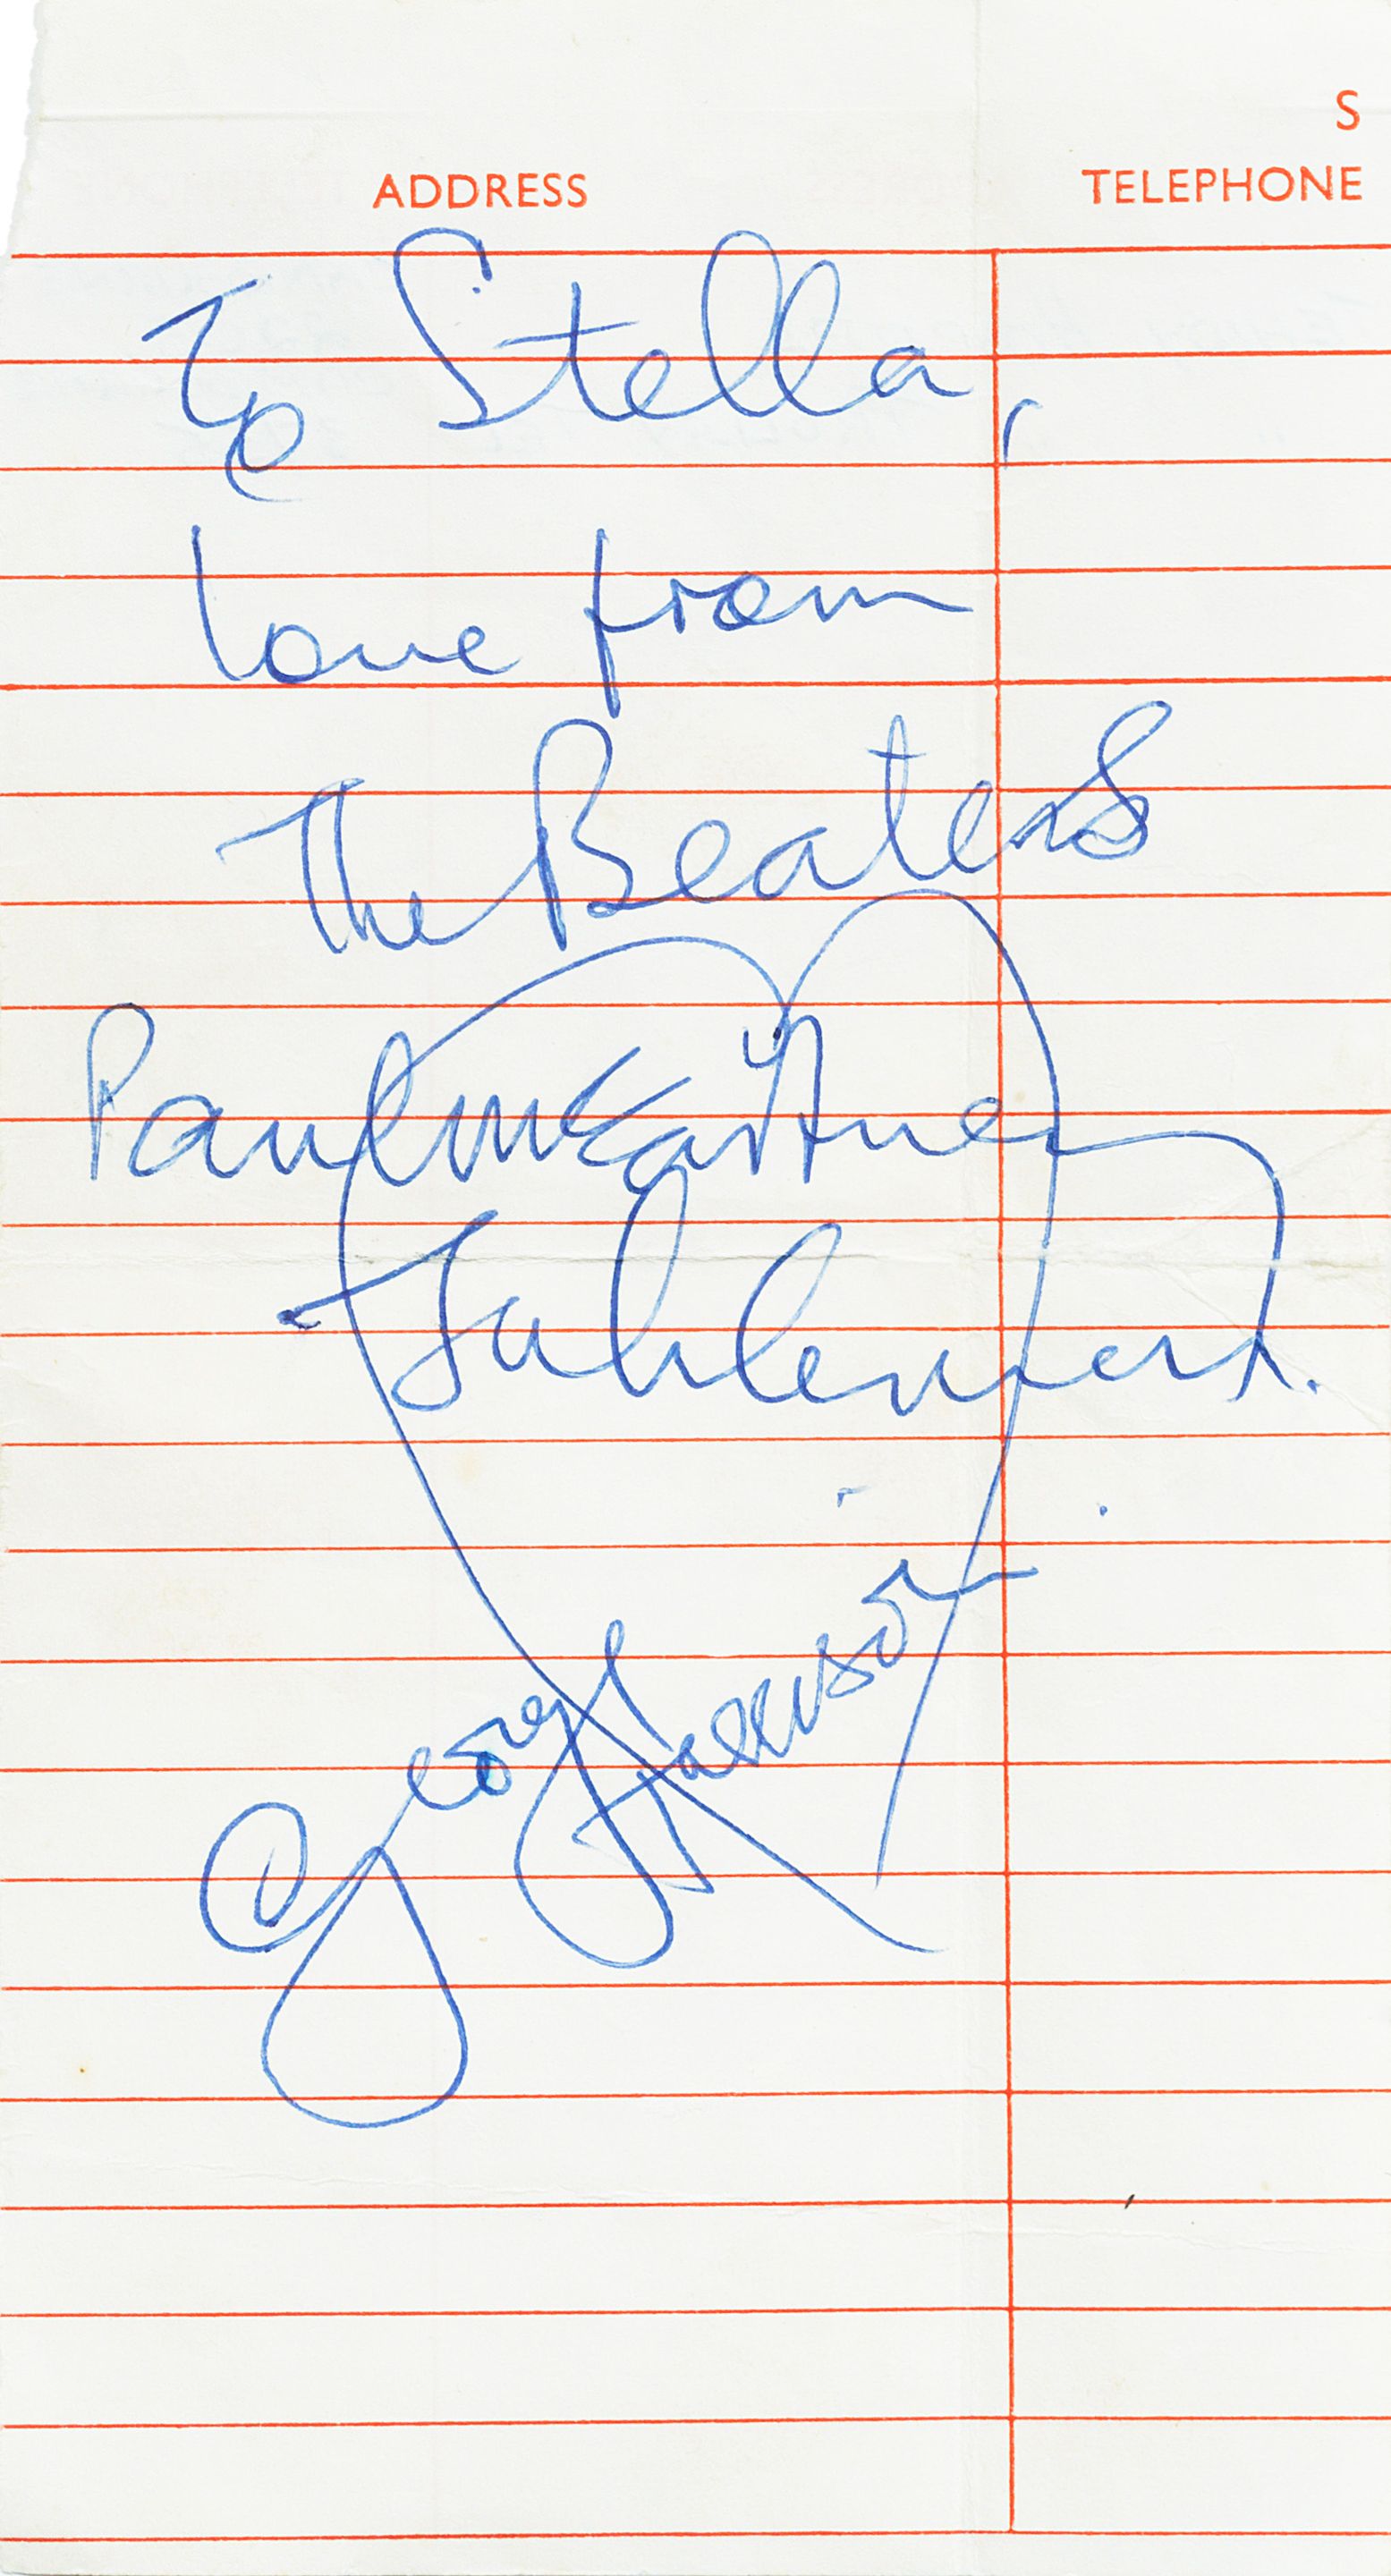 S
ADDRESS TELEPHONE
To Stella,
love from
The Beatles
Paul McCartney
John Lennon.
George Harrison